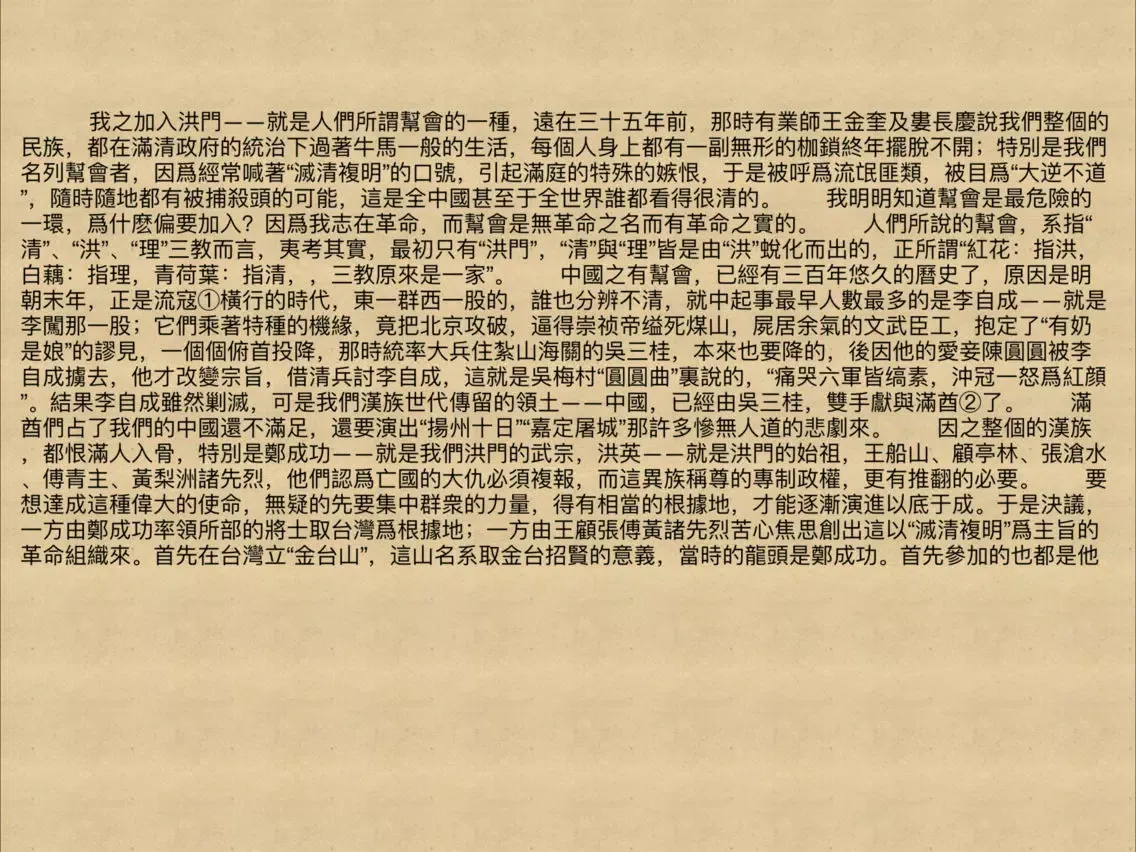 我之加入洪門——就是人們所謂幫會的一種，遠在三十五年前，那時有業師王金奎及婁長慶說我們整個的
民族，都在滿清政府的統治下過著牛馬一般的生活，每個人身上都有一副無形的枷鎖終年擺脫不開；特別是我們
名列幫會者，因爲經常喊著“滅清複明”的口號，引起滿庭的特殊的嫉恨，于是被呼爲流氓匪類，被目爲“大逆不道
”，隨時隨地都有被捕殺頭的可能，這是全中國甚至于全世界誰都看得很清的。 我明明知道幫會是最危險的
一環，爲什麽偏要加入？因爲我志在革命，而幫會是無革命之名而有革命之實的。 人們所說的幫會，系指“
清”、“洪”、“理”三教而言，夷考其實，最初只有“洪門”，“清”與“理”皆是由“洪”蛻化而出的，正所謂“紅花：指洪，
白藕：指理，青荷葉：指清，，三教原來是一家”。 中國之有幫會，已經有三百年悠久的曆史了，原因是明
朝末年，正是流寇①橫行的時代，東一群西一股的，誰也分辨不清，就中起事最早人數最多的是李自成——就是
李闖那一股；它們乘著特種的機緣，竟把北京攻破，逼得崇祯帝缢死煤山，屍居余氣的文武臣工，抱定了“有奶
是娘”的謬見，一個個俯首投降，那時統率大兵住紮山海關的吳三桂，本來也要降的，後因他的愛妾陳圓圓被李
自成擄去，他才改變宗旨，借清兵討李自成，這就是吳梅村“圓圓曲”裏說的，“痛哭六軍皆缟素，沖冠一怒爲紅顔
”。結果李自成雖然剿滅，可是我們漢族世代傳留的領土——中國，已經由吳三桂，雙手獻與滿酋②了。 滿
酋們占了我們的中國還不滿足，還要演出“揚州十日”“嘉定屠城”那許多慘無人道的悲劇來。 因之整個的漢族
，都恨滿人入骨，特別是鄭成功——就是我們洪門的武宗，洪英——就是洪門的始祖，王船山、顧亭林、張滄水
、傅青主、黃梨洲諸先烈，他們認爲亡國的大仇必須複報，而這異族稱尊的專制政權，更有推翻的必要。 要
想達成這種偉大的使命，無疑的先要集中群衆的力量，得有相當的根據地，才能逐漸演進以底于成。于是決議，
一方由鄭成功率領所部的將士取台灣爲根據地；一方由王顧張傅黃諸先烈苦心焦思創出這以“滅清複明”爲主旨的
革命組織來。首先在台灣立“金台山”，這山名系取金台招賢的意義，當時的龍頭是鄭成功。首先參加的也都是他